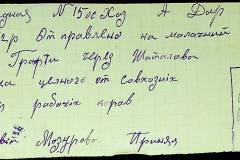 дная N 15 ос Хоз А Дир
2р Отправлено на молочный
Графти через Шаталова
ка цельного от совхозных
рабочих коров
Мозурова Принял